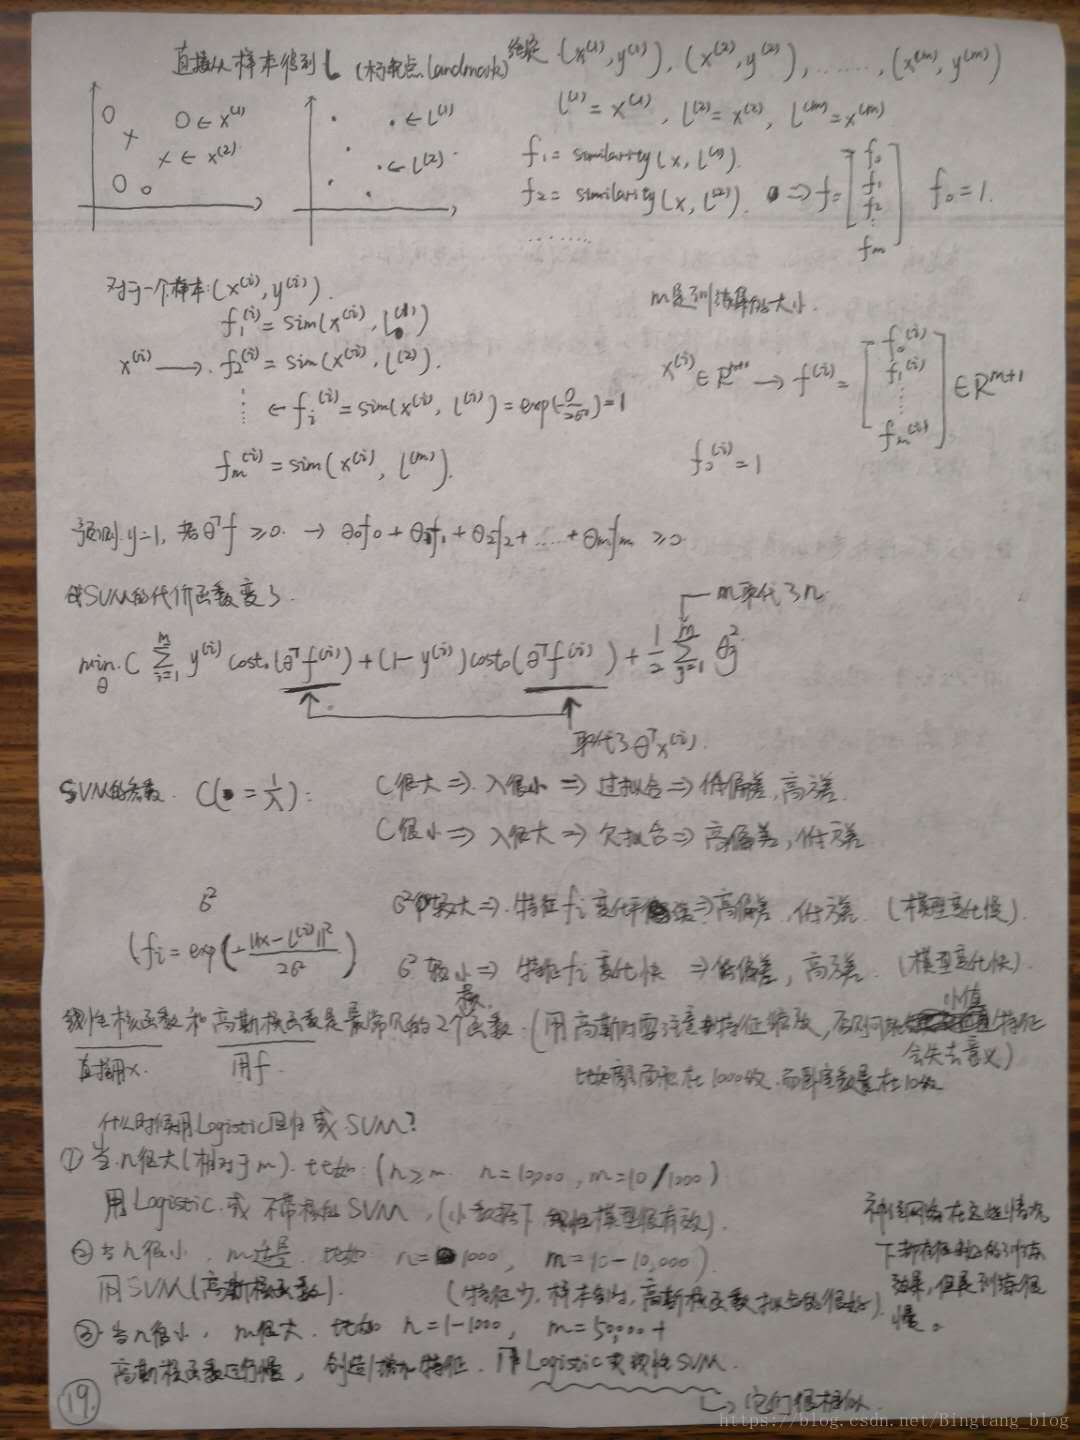 直接从样本得到 l (标记点, landmark) 给定 (x⁽¹⁾, y⁽¹⁾), (x⁽²⁾, y⁽²⁾), ......, (x⁽ᵐ⁾, y⁽ᵐ⁾)
O ← x⁽¹⁾
x ← x⁽²⁾
← l⁽¹⁾
← l⁽²⁾
l⁽¹⁾ = x⁽¹⁾, l⁽²⁾ = x⁽²⁾, l⁽ᵐ⁾ = x⁽ᵐ⁾
f₁ = similarity(x, l⁽¹⁾).
f₂ = similarity(x, l⁽²⁾). ⇒ f = [f₀ f₁ f₂ ⋮ fₘ] f₀ = 1.
........
对于一个样本: (x⁽ⁱ⁾, y⁽ⁱ⁾). m是训练集的大小.
f₁⁽ⁱ⁾ = sim(x⁽ⁱ⁾, l⁽¹⁾)
x⁽ⁱ⁾ → f₂⁽ⁱ⁾ = sim(x⁽ⁱ⁾, l⁽²⁾).
⋮ ← fᵢ⁽ⁱ⁾ = sim(x⁽ⁱ⁾, l⁽ⁱ⁾) = exp(-0/2σ²) = 1
fₘ⁽ⁱ⁾ = sim(x⁽ⁱ⁾, l⁽ᵐ⁾).
x⁽ⁱ⁾ ∈ → f⁽ⁱ⁾ = [f₀⁽ⁱ⁾ f₁⁽ⁱ⁾ ⋮ fₘ⁽ⁱ⁾] ∈ Rᵐ⁺¹
f₀⁽ⁱ⁾ = 1
预测 y=1, 若 θᵀf ≥ 0. → θ₀f₀ + θ₁f₁ + θ₂f₂ + ..... + θₘfₘ ≥ 0
SVM的代价函数变了.
m取代了n
min_θ. C Σᵢ₌₁ᵐ y⁽ⁱ⁾ cost₁(θᵀf⁽ⁱ⁾) + (1 - y⁽ⁱ⁾) cost₀(θᵀf⁽ⁱ⁾) + 1/2 Σⱼ₌₁ᵐ θⱼ²
取代了θᵀx⁽ⁱ⁾.
SVM的参数. C( = 1/λ): C很大 ⇒ λ很小 ⇒ 过拟合 ⇒ 低偏差, 高方差.
C很小 ⇒ λ很大 ⇒ 欠拟合 ⇒ 高偏差, 低方差
σ² σ²较大 ⇒ 特征fᵢ变化 ⇒ 高偏差, 低方差. (模型变化慢).
(fᵢ = exp(-‖x - l⁽ⁱ⁾‖²/2σ²) σ²较小 ⇒ 特征fᵢ变化快 ⇒ 低偏差, 高方差. (模型变化快).
线性核函数和高斯核函数是最常见的2个核函数. (用高斯时需注意到特征缩放, 否则小值特征
会失去意义)
直接用x. 用f. 比如房面积在1000级, 而卧室数量在10级
什么时候用Logistic回归或SVM?
① 当n很大(相对于m). 比如: (n ≥ m. n = 10,000, m = 10/1000)
用Logistic. 或不带核的SVM, (小数据下线性模型很有效).
② 当n很小, m适量. 比如 n = 1000, m = 10 - 10,000).
用SVM(高斯核函数). (特征少, 样本, 高斯核函数拟合的很好).
③ 当n很小, m很大. 比如 n = 1-1000, m = 50,000+
高斯核函数运行慢, 创造/增加特征. 用Logistic或线性SVM.
它们很相似.
神经网络在这些情况
下都有很好的训练
效果, 但是训练很
慢。
19.
https://blog.csdn.net/Bingtang_blog